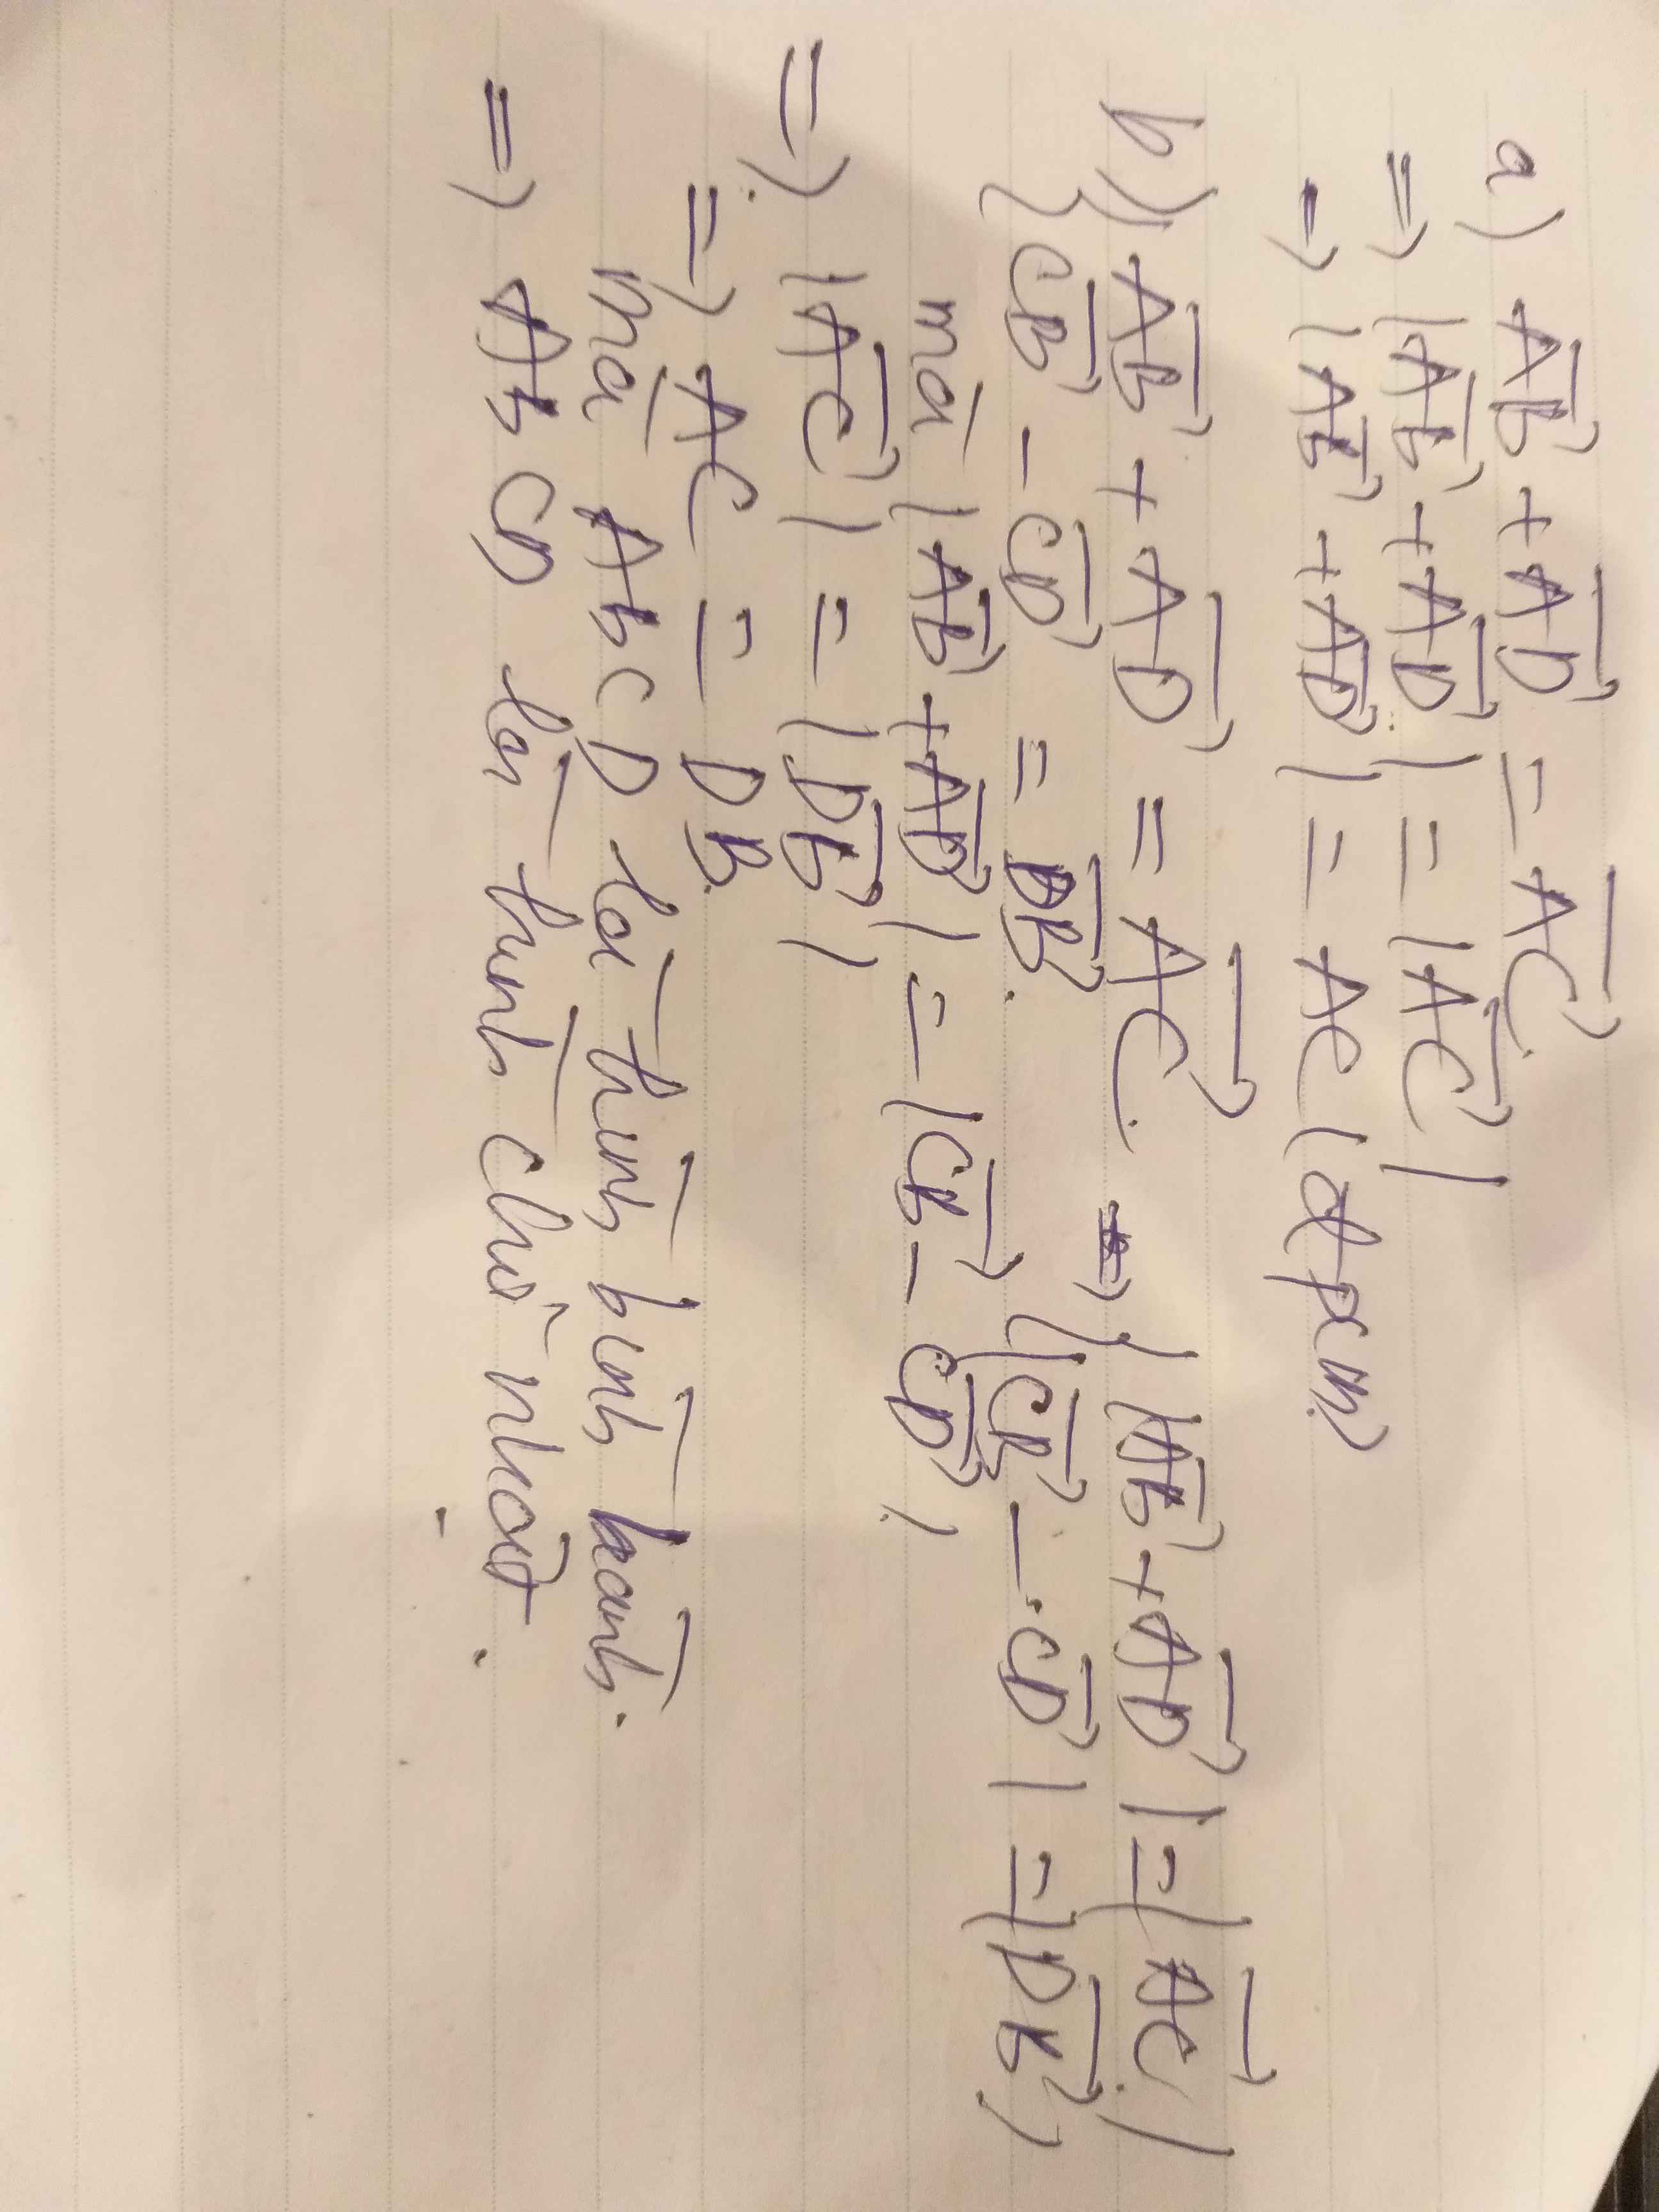 a) $\overrightarrow{AB} + \overrightarrow{AD} = \overrightarrow{AC}$.
=> $|\overrightarrow{AB} + \overrightarrow{AD}| = |\overrightarrow{AC}|$
=> $|\overrightarrow{AB} + \overrightarrow{AD}| = AC$ (đpcm)
b) { $\overrightarrow{AB} + \overrightarrow{AD} = \overrightarrow{AC}$. => { $|\overrightarrow{AB} + \overrightarrow{AD}| = |\overrightarrow{AC}|$
{ $\overrightarrow{CB} - \overrightarrow{CD} = \overrightarrow{DB}$. { $|\overrightarrow{CB} - \overrightarrow{CD}| = |\overrightarrow{DB}|$
mà $|\overrightarrow{AB} + \overrightarrow{AD}| = |\overrightarrow{CB} - \overrightarrow{CD}|$
=> $|\overrightarrow{AC}| = |\overrightarrow{DB}|$
=> AC = DB.
mà ABCD là hình bình hành.
=> ABCD là hình chữ nhật.